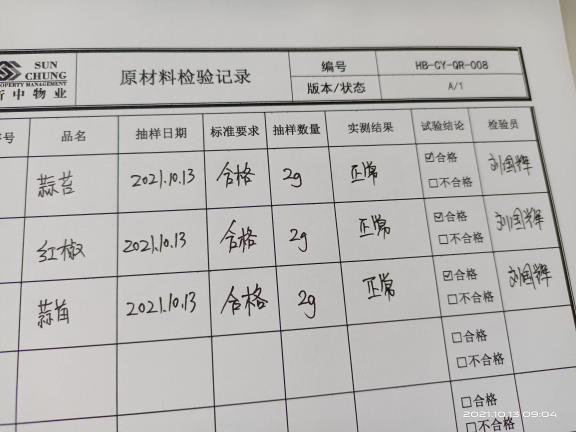 SUN
CHUNG
PROPERTY MANAGEMENT
新中物业
原材料检验记录
编号 HB-GY-QR-008
版本/状态 A/1
号 品名 抽样日期 标准要求 抽样数量 实测结果 试验结论 检验员
蒜苔 2021.10.13 合格 2g 正常 ☑合格 □不合格 刘国辉
红椒 2021.10.13 合格 2g 正常 ☑合格 □不合格 刘国辉
蒜苗 2021.10.13 合格 2g 正常 ☑合格 □不合格 刘国辉
□合格
□不合格
□合格
□不合格
2021.10.13 09:04